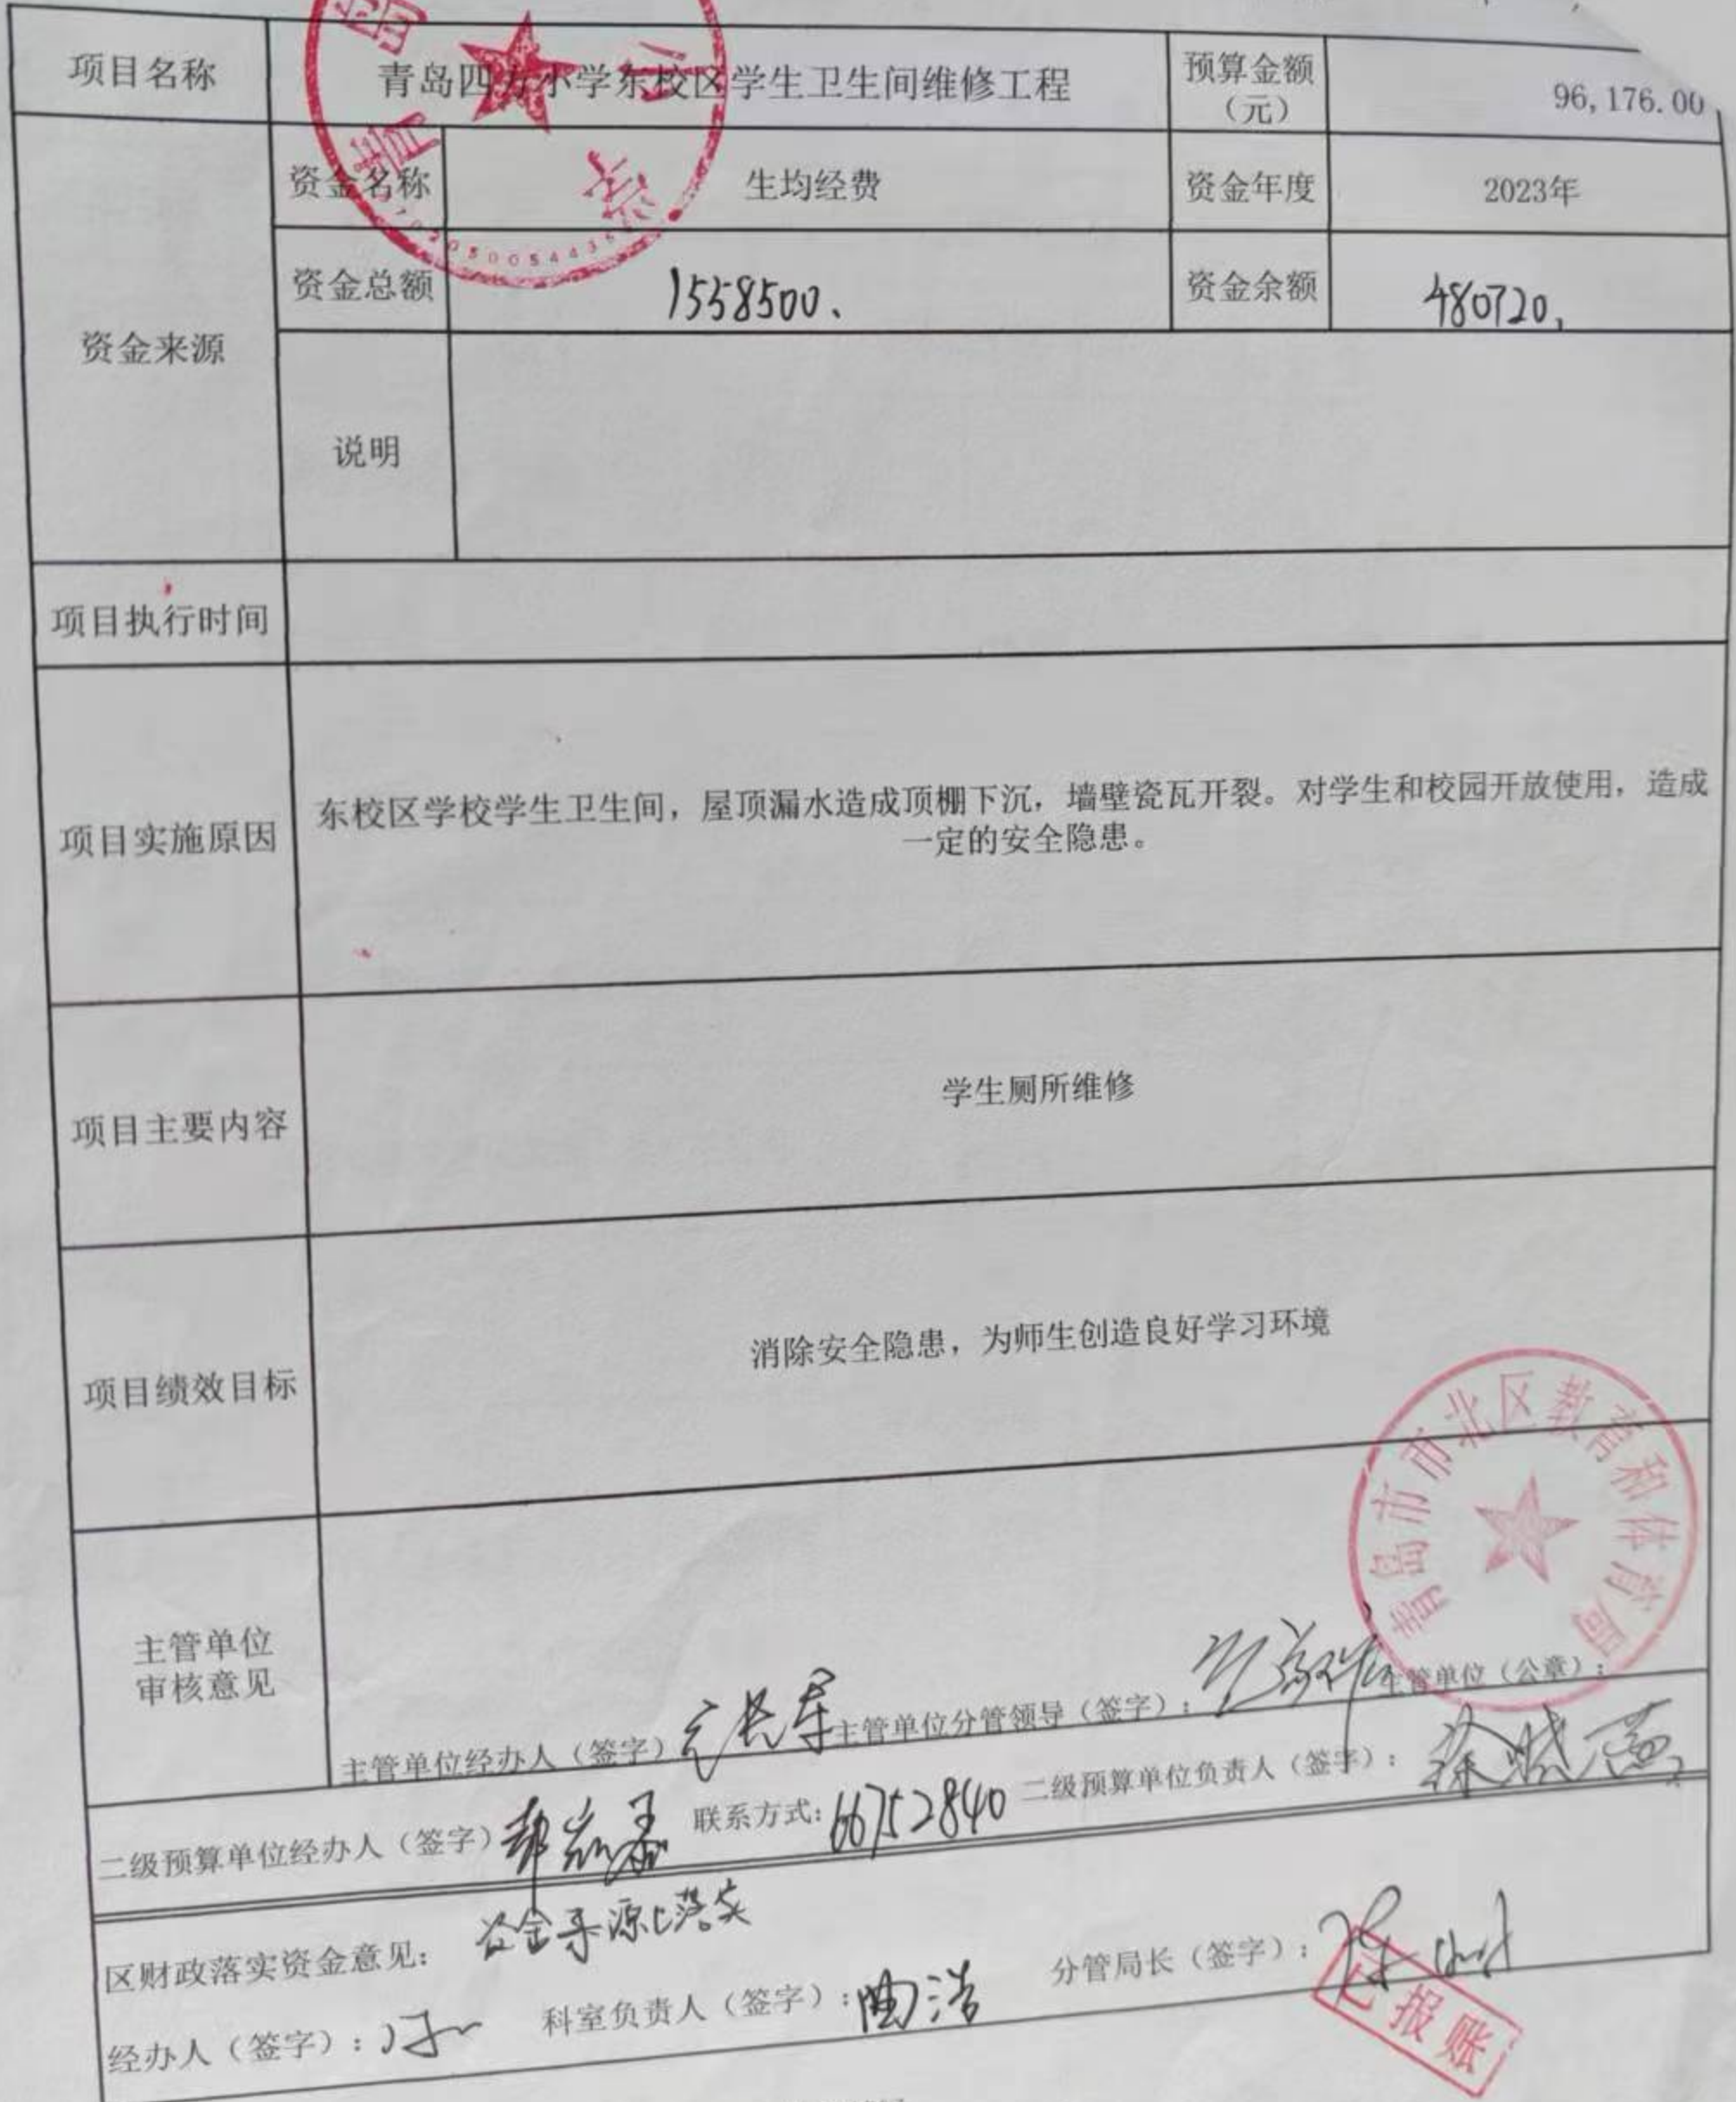 项目名称 青岛四方小学东校区学生卫生间维修工程 预算金额（元） 96,176.00
资金来源
资金名称 生均经费 资金年度 2023年
资金总额 1558500、 资金余额 480720,
说明
项目执行时间
项目实施原因
东校区学校学生卫生间，屋顶漏水造成顶棚下沉，墙壁瓷瓦开裂。对学生和校园开放使用，造成
一定的安全隐患。
项目主要内容 学生厕所维修
项目绩效目标 消除安全隐患，为师生创造良好学习环境
青岛市市北区教育和体育局
主管单位
审核意见
主管单位经办人（签字） 主管单位分管领导（签字）： 主管单位（公章）：
二级预算单位经办人（签字） 联系方式：66752840 二级预算单位负责人（签字）：
区财政落实资金意见： 资金来源已落实
经办人（签字）： 科室负责人（签字）：曲浩 分管局长（签字）：
已报账